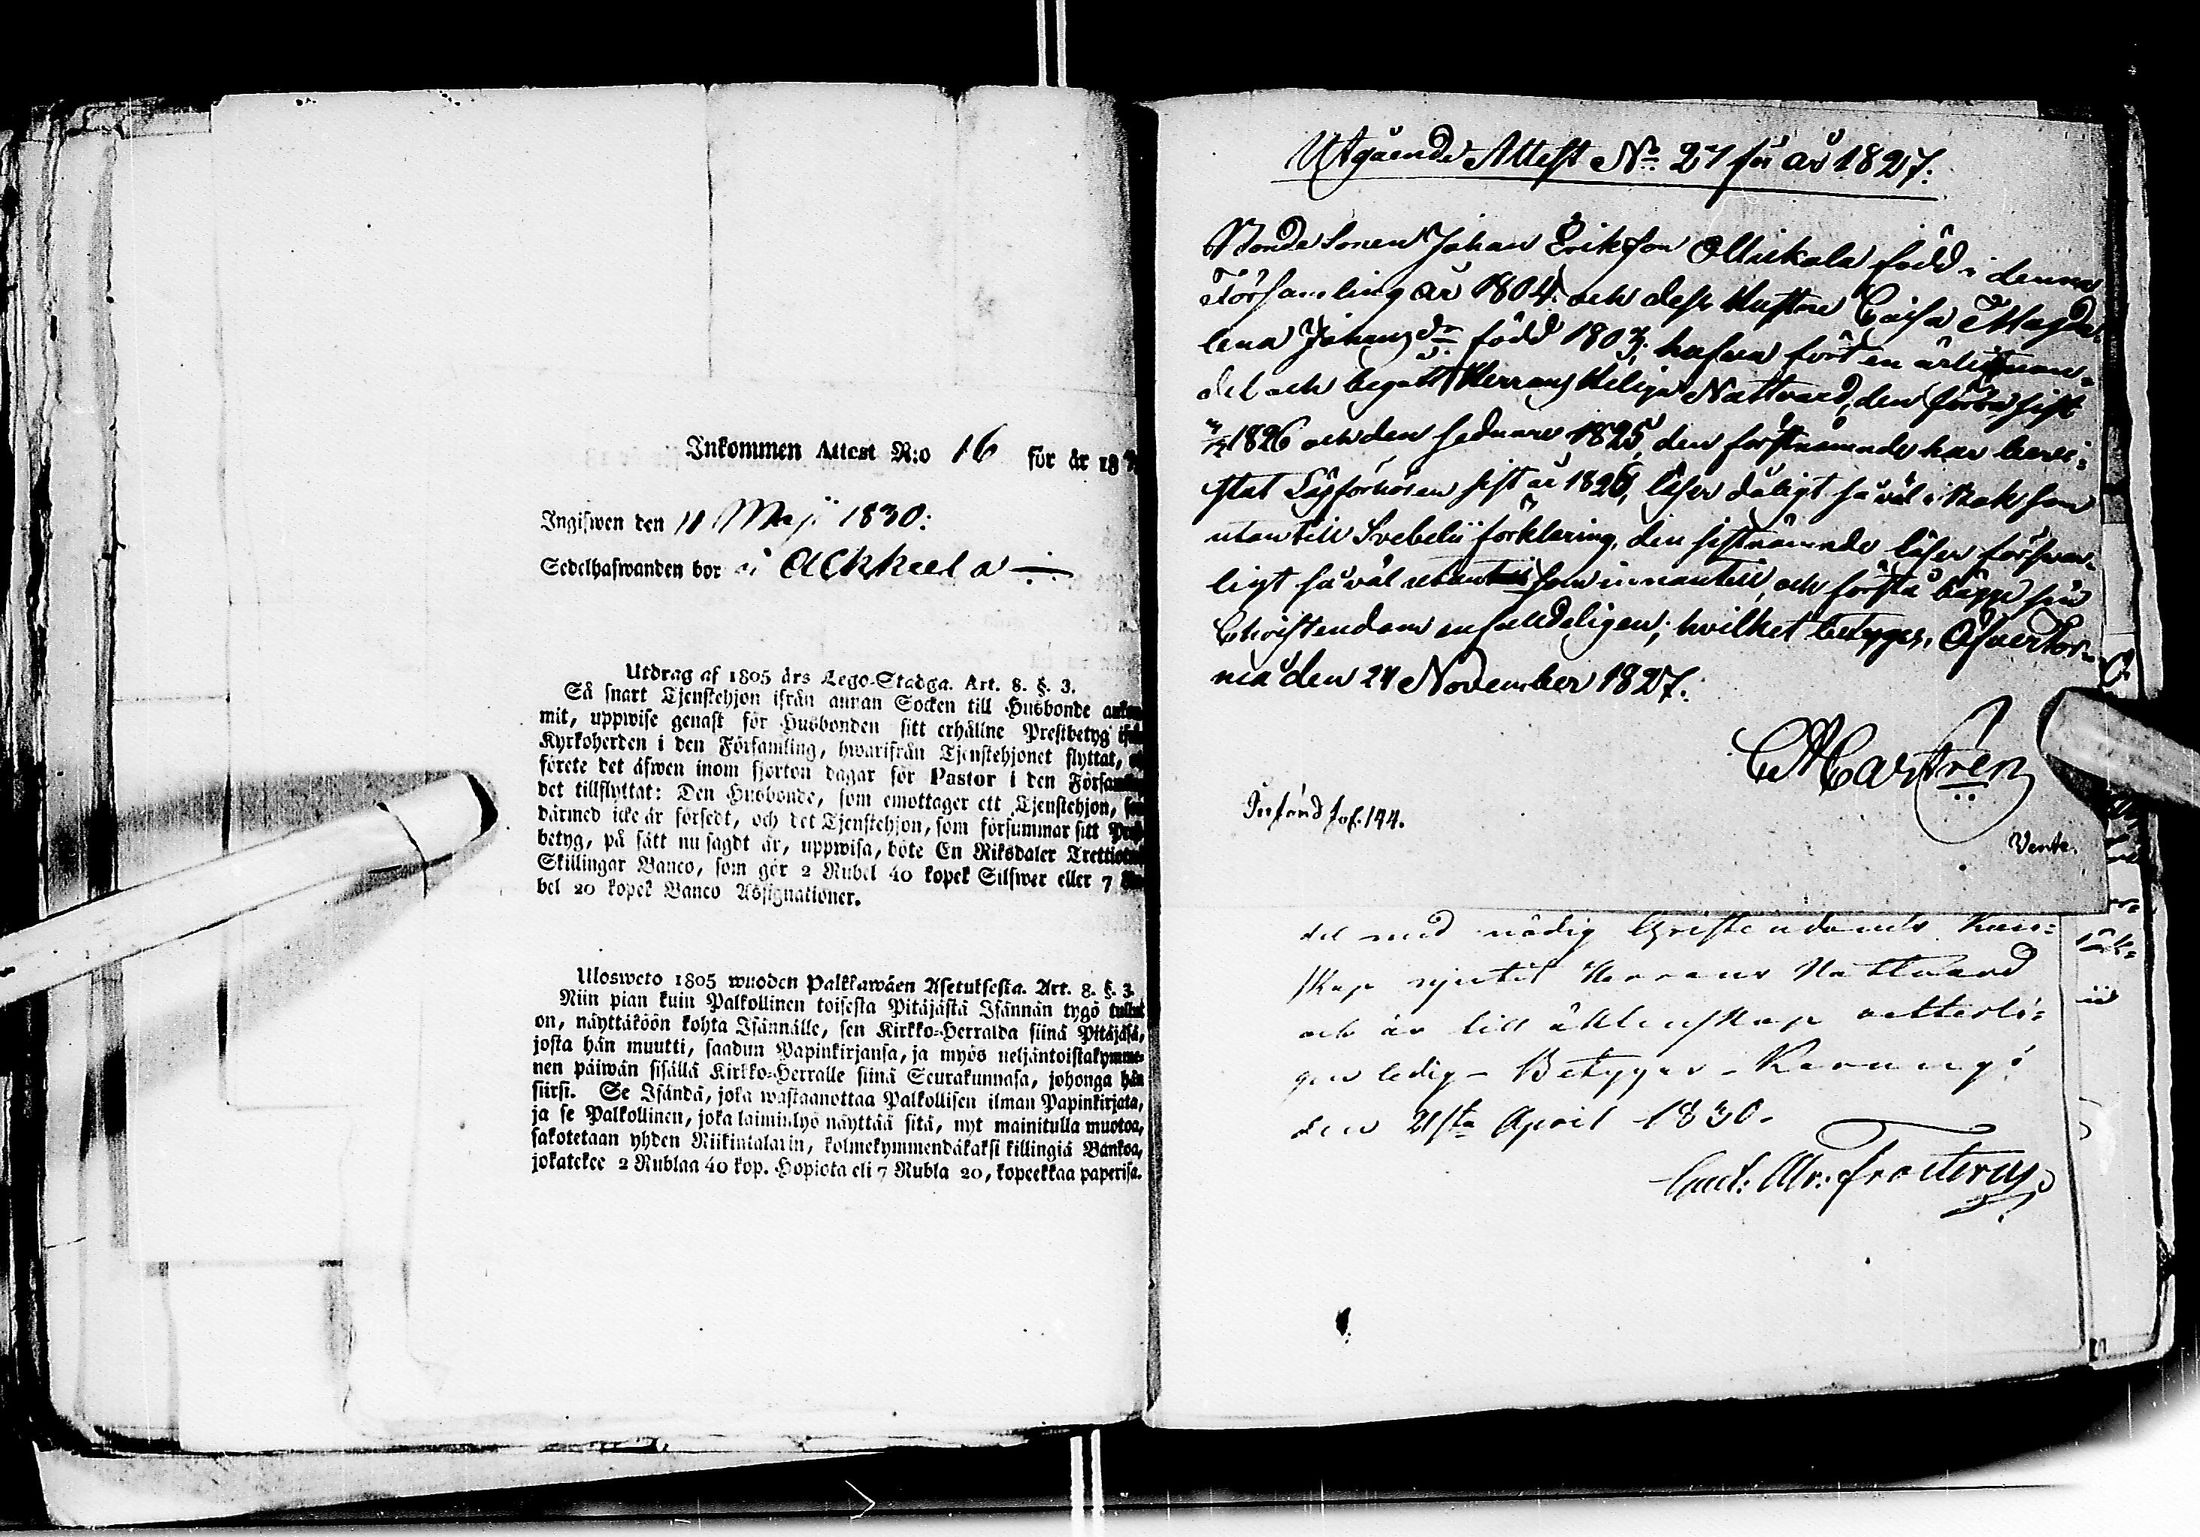 Inkommen Attest N:o 16 för år 18
Ingifwen den 11 Maji 1830:
Sedelhafwanden bor i Alkkula
Utdrag af 1805 års Lego-Stadga. Art. 8. §. 3.
Så snart Tjenstehjon ifrån annan Socken till Husbonde ankom-
mit, uppwise genast för Husbonden sitt erhållne Prestbetyg ifrån
Kyrkoherden i den Församling, hwarifrån Tjenstehjonet flyttat,
förete det äfwen inom fjorton dagar för Pastor i den Församling
det tillflyttat: Den Husbonde, som emottager ett Tjenstehjon, som
därmed icke är försedt, och det Tjenstehjon, som försummar sitt Prest-
betyg, på sätt nu sagdt är, uppwisa, böte En Riksdaler Trettiotwå
Skillingar Banco, som gör 2 Rubel 40 kopek Silfwer eller 7 Ru-
bel 20 kopek Banco Assignationer.
Ulosweto 1805 wuoden Palkkawäen Asetuksesta. Art. 8. §. 3.
Niin pian kuin Palkollinen toisesta Pitäjästä Isännän tygö tullut
on, näyttäköön kohta Isännälle, sen Kirkko-Herralda siinä Pitäjäsä,
josta hän muutti, saadun Papinkirjansa, ja myös neljäntoistakymme-
nen päiwän sisällä Kirkko-Herralle siinä Seurakunnasa, johonga hän
siirsi. Se Isändä, joka wastaanottaa Palkollisen ilman Papinkirjata,
ja se Palkollinen, joka laiminlyö näyttää sitä, nyt mainitulla muotoa,
sakotetaan yhden Riikintalarin, kolmekymmendäkaksi killingiä Bankoa,
jokatekee 2 Rublaa 40 kop. Hopiota eli 7 Rubla 20, kopeekkaa paperisa.
Utgående Attest No 27 för år 1827:
Bonde Sonen Johan Erikson Mickala född i denna
Församling år 1804. och dess Hustru Caisa Magda-
lena Johansdr. född 1803; hafva fört en ärlig van-
del och begått Herrans Heliga Nattvard, den förra sist
1826 och den sednare 1825, den förstnämnde har bevi-
stat Läsförhören sist år 1826, läser dåligt så väl i Bok som
utan till Svebelii förklaring, den sistnämnde läser försvar-
ligt så väl utantill som innantill, och förstå bägge sin
Christendom enfaldeligen; hvilket betygas, Öfvertor-
neå den 24 November 1827.
C A Castrén
Införd fol. 144.
Vente.
del med nödig Christendoms kun-
skap njutit Herrans Nattward
och är till äktenskap vetterli-
gen ledig - Betygar - Karungi
den 21sta April 1830.
And. Mr: Frosterus